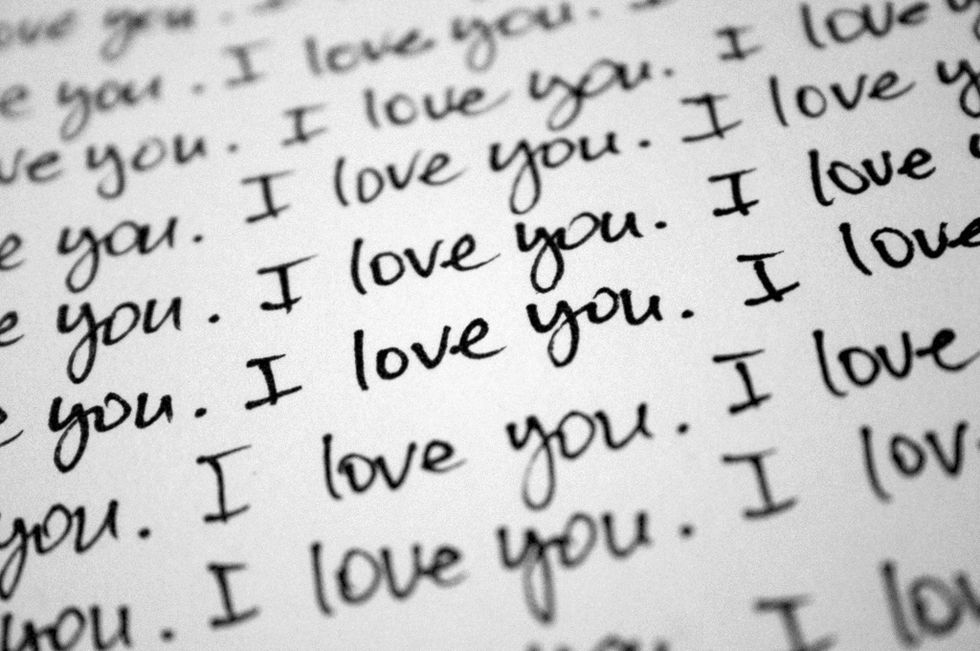 ove you. I
e you. I love you. I
ve you. I love you. I love y
e you. I love you. I love y
e you. I love you. I love
e you. I love you. I love
you. I love you. I love
you. I love you. I lov
you. I lov